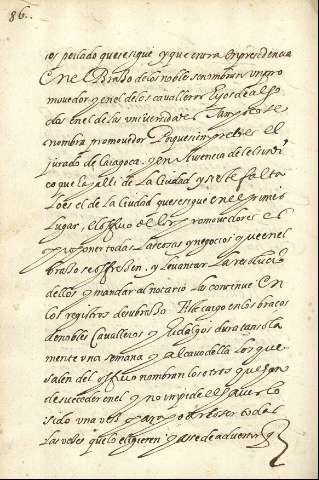 86.
perlado que se sigue y que entra en presidencia
En el Braso de los nobles se nombra un pro
movedor y en el de los cavalleros Eijos de algo
das en el de la universidad el tanpoco se
nombra promovedor Porque siempre es el
jurado de Caragoça, y en ausencia del el sindi
co que la alli de la Ciudad y si este falta
lo es el de la Ciudad que se sigue en el primio
lugar, El officio de los promovedores es
proponer todas las cosas y negocios que en el
braso se offresen, y levantar la resolucio
dellos y mandar al notario las continue en
los registros de su braso. Este cargo en los braços
de nobles Cavalleros y hidalgos dura tan sola
mente una semana y al cavo della los que
salen del officio nombran los otros que han
de succeder en el y no impide el haverlo
sido una ves para poderlo ser todas
las veses que lo eligieren y a se de advertir q